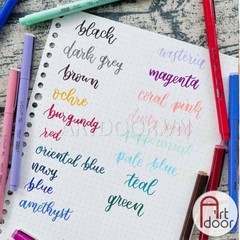 black
dark grey
brown
ochre
burgundy
red
oriental blue
navy
blue
amethyst
wisteria
magenta
coral pink
pale blue
teal
green
Art
door